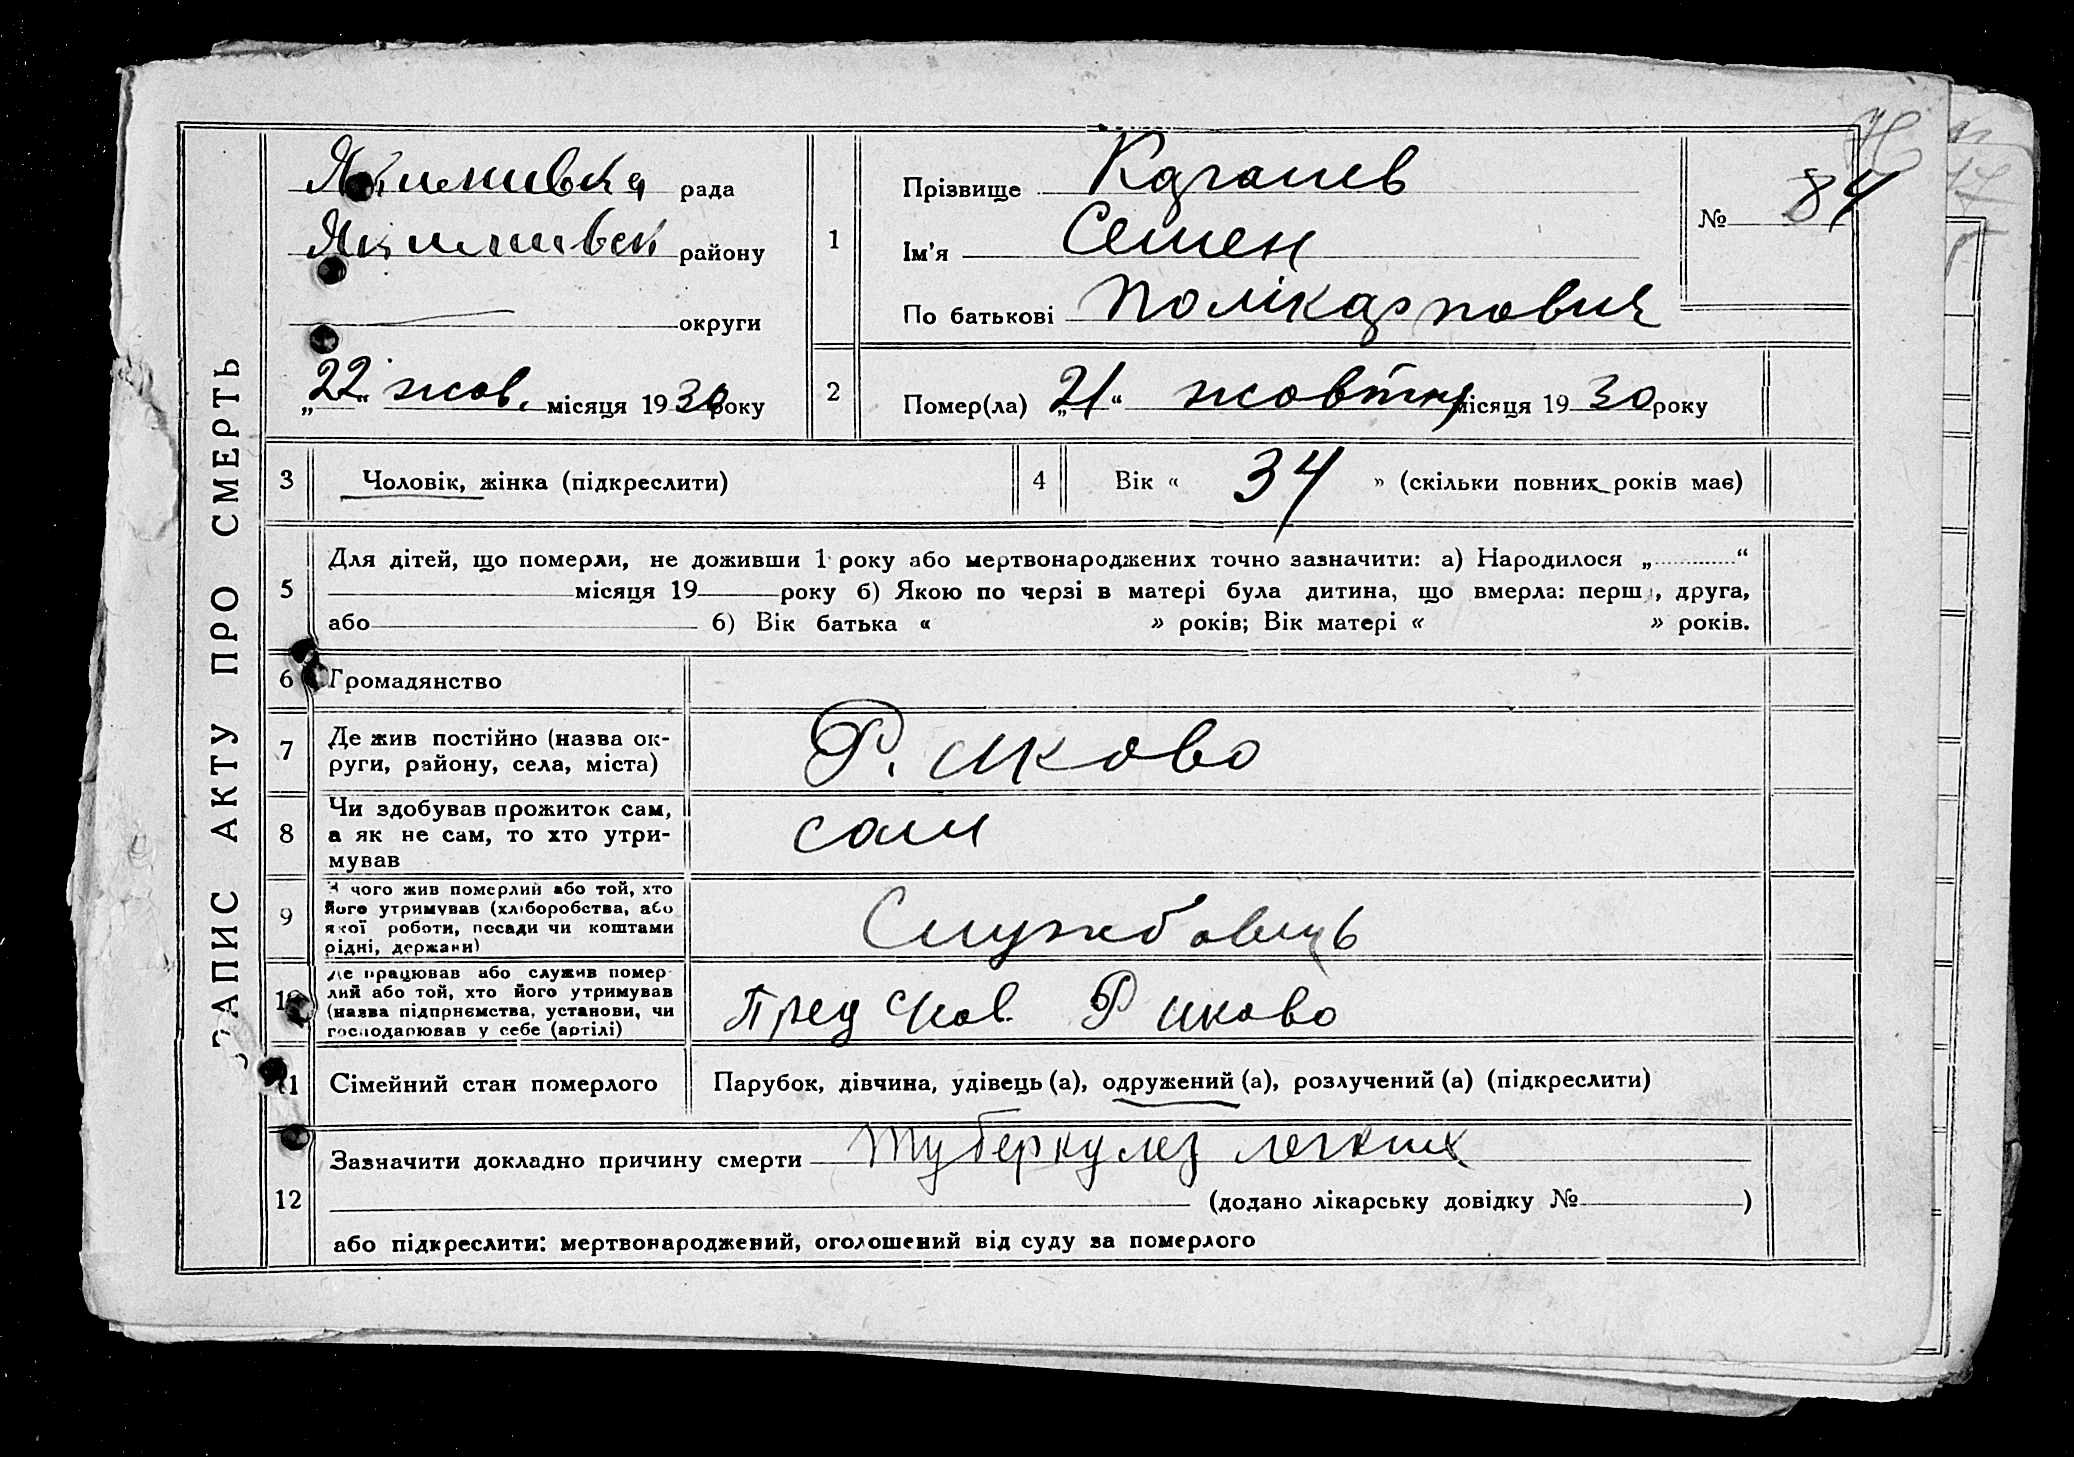 ЗАПИС АКТУ ПРО СМЕРТЬ
Якимивка рада
Якимивськ району
округи
„22“ жов. місяця 1930 року
1
Прізвище
Ім'я Семен
По батькові Полікарпович
№ 84
2 Помер(ла) „21“ жовтня місяця 1930 року
3 Чоловік, жінка (підкреслити)
4 Вік « 34 » (скільки повних років має)
5 Для дітей, що померли, не доживши 1 року або мертвонароджених точно зазначити: а) Народилося „ “
місяця 19 року б) Якою по черзі в матері була дитина, що вмерла: перш , друга,
або б) Вік батька « » років; Вік матері « » років.
6 Громадянство
7 Де жив постійно (назва ок-
руги, району, села, міста)
Р. иково
8 Чи здобував прожиток сам,
а як не сам, то хто утри-
мував
сам
9 З чого жив померлий або той, хто
його утримував (хліборобства, або
якої роботи, посади чи коштами
рідні, держави)
Службовець
10 Де працював або служив помер-
лий або той, хто його утримував
(назва підприємства, установи, чи
господарював у себе (артілі)
Пред Р иково
11 Сімейний стан померлого
Парубок, дівчина, удівець (а), одружений (а), розлучений (а) (підкреслити)
12 Зазначити докладно причину смерти туберкулез легких
(додано лікарську довідку № )
або підкреслити: мертвонароджений, оголошений від суду за померлого